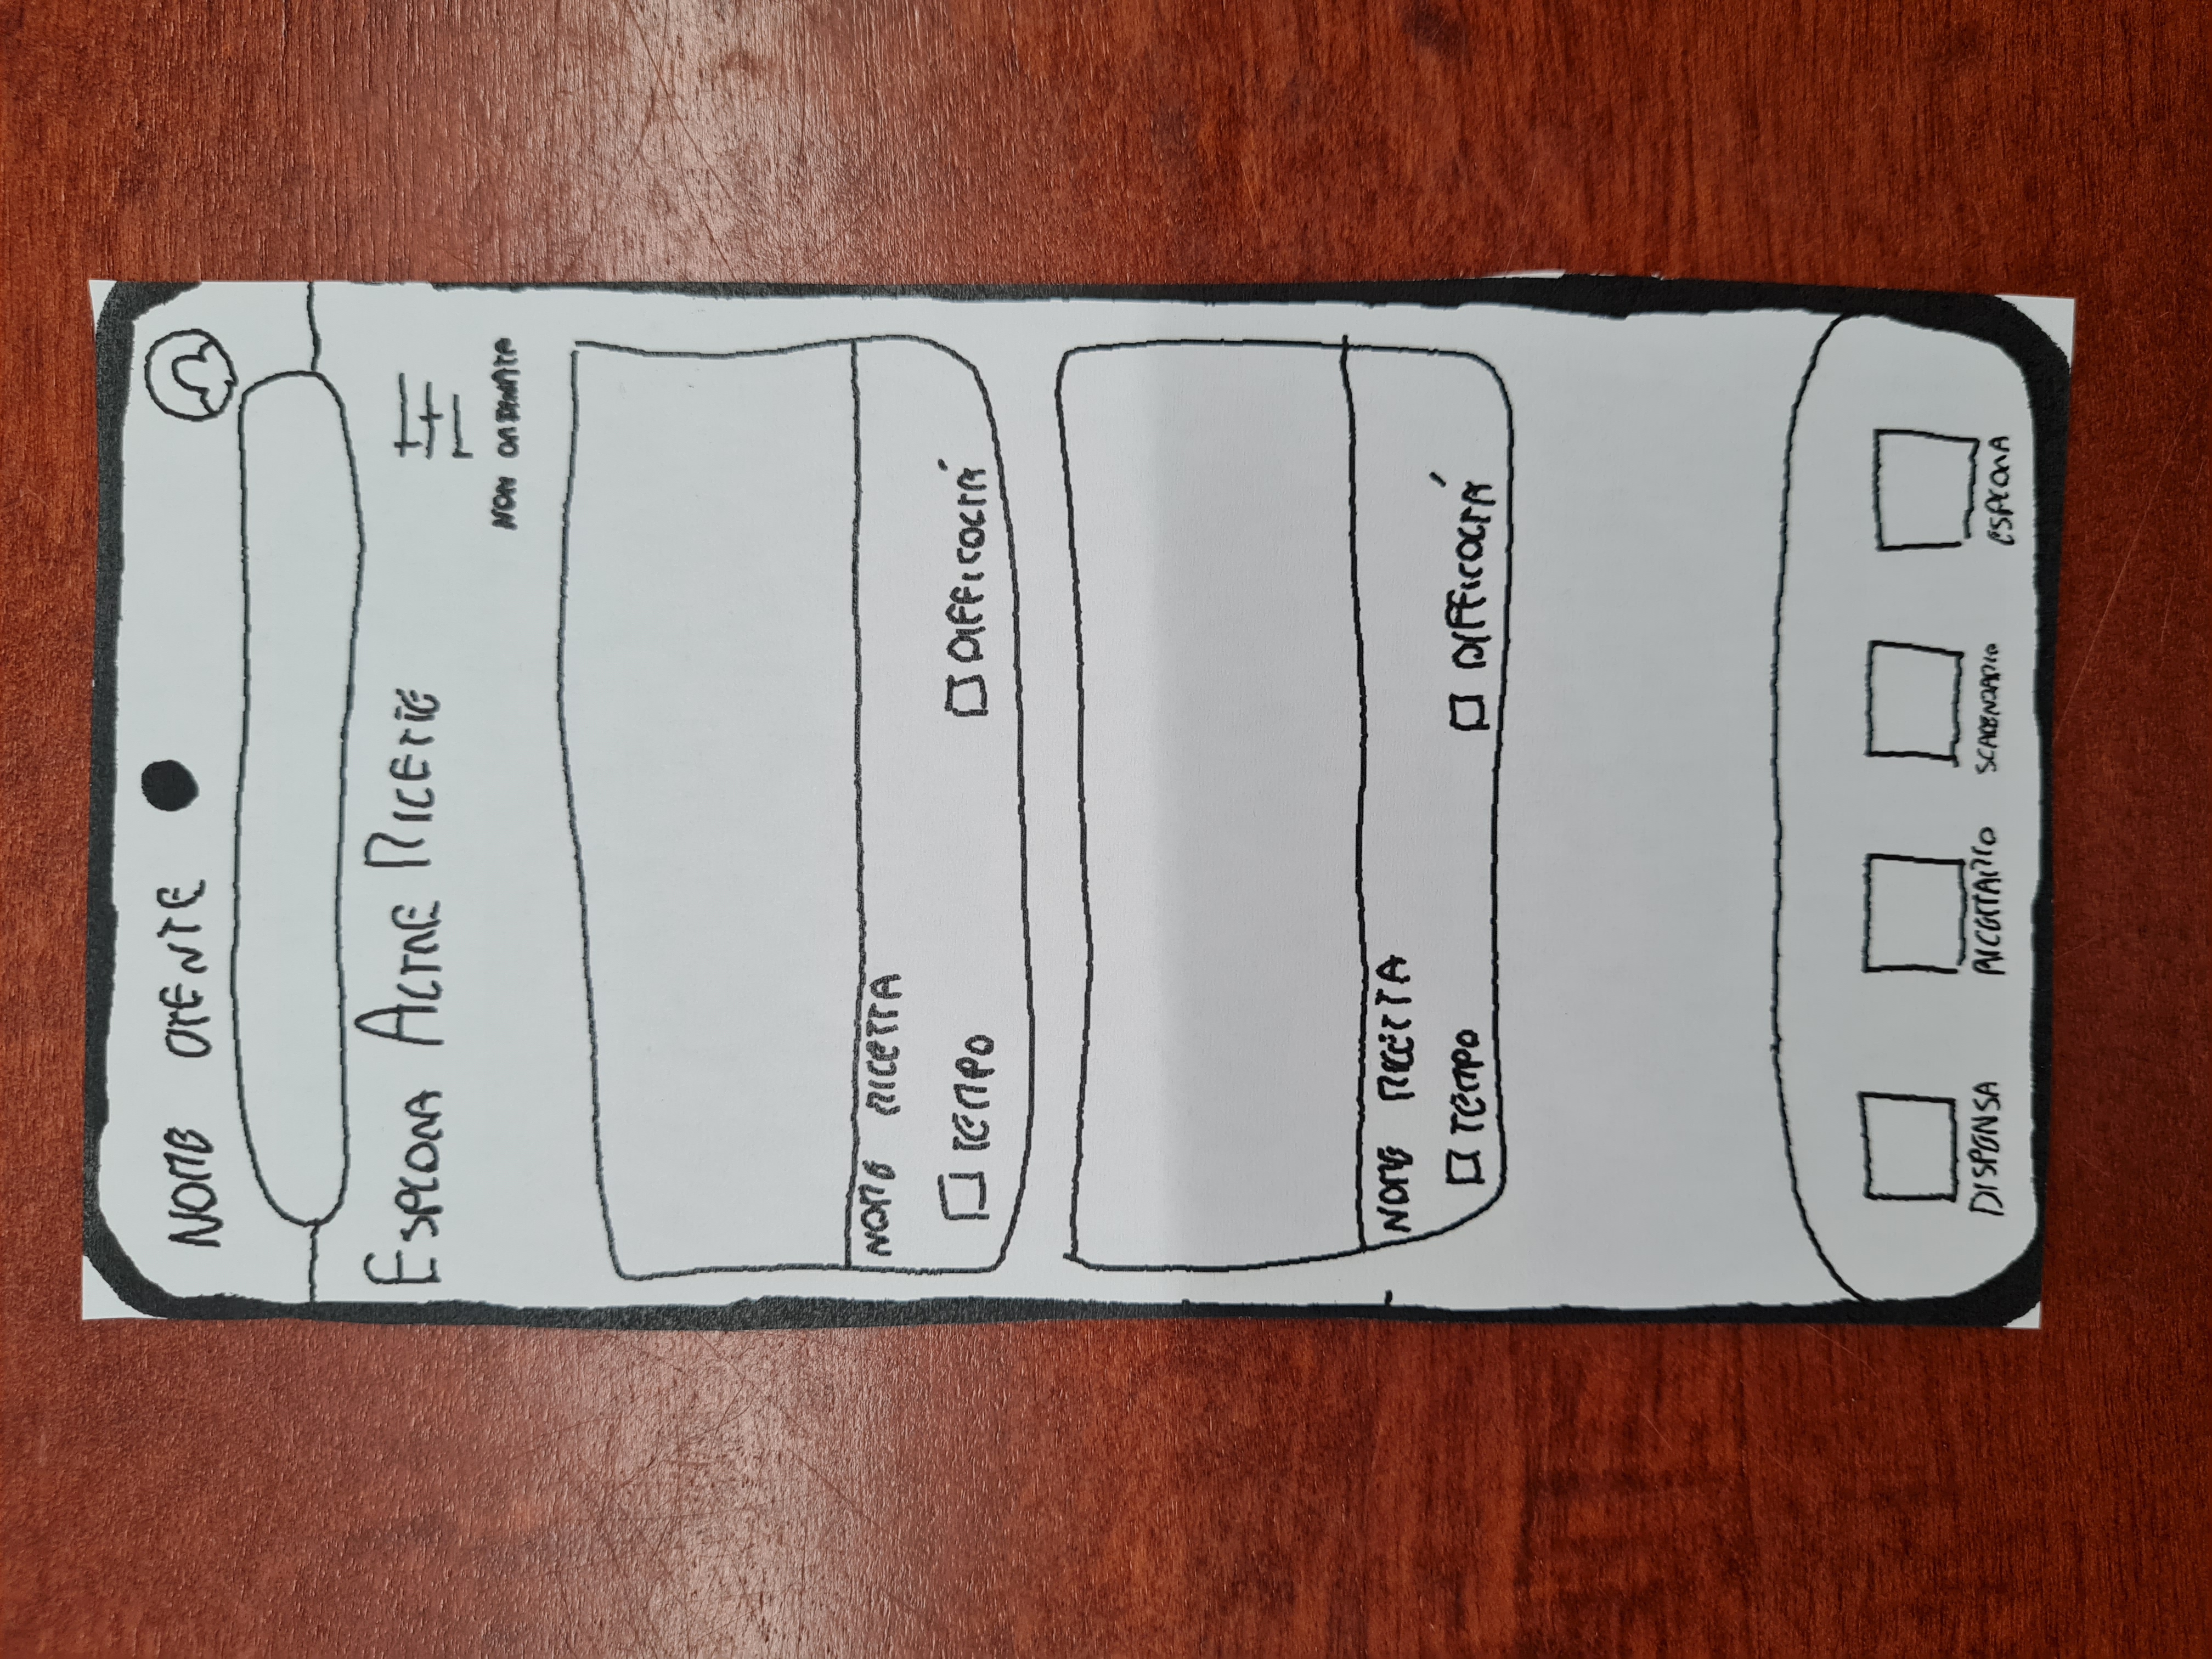 NOME UTENTE
ESPLORA ALTRE RICETTE
NON ORDINATA
NOME RICETTA
TEMPO DIFFICOLTÁ
NOME RICETTA
TEMPO DIFFICOLTÁ
DISPENSA RICETTARIO SCADENZARIO ESPLORA